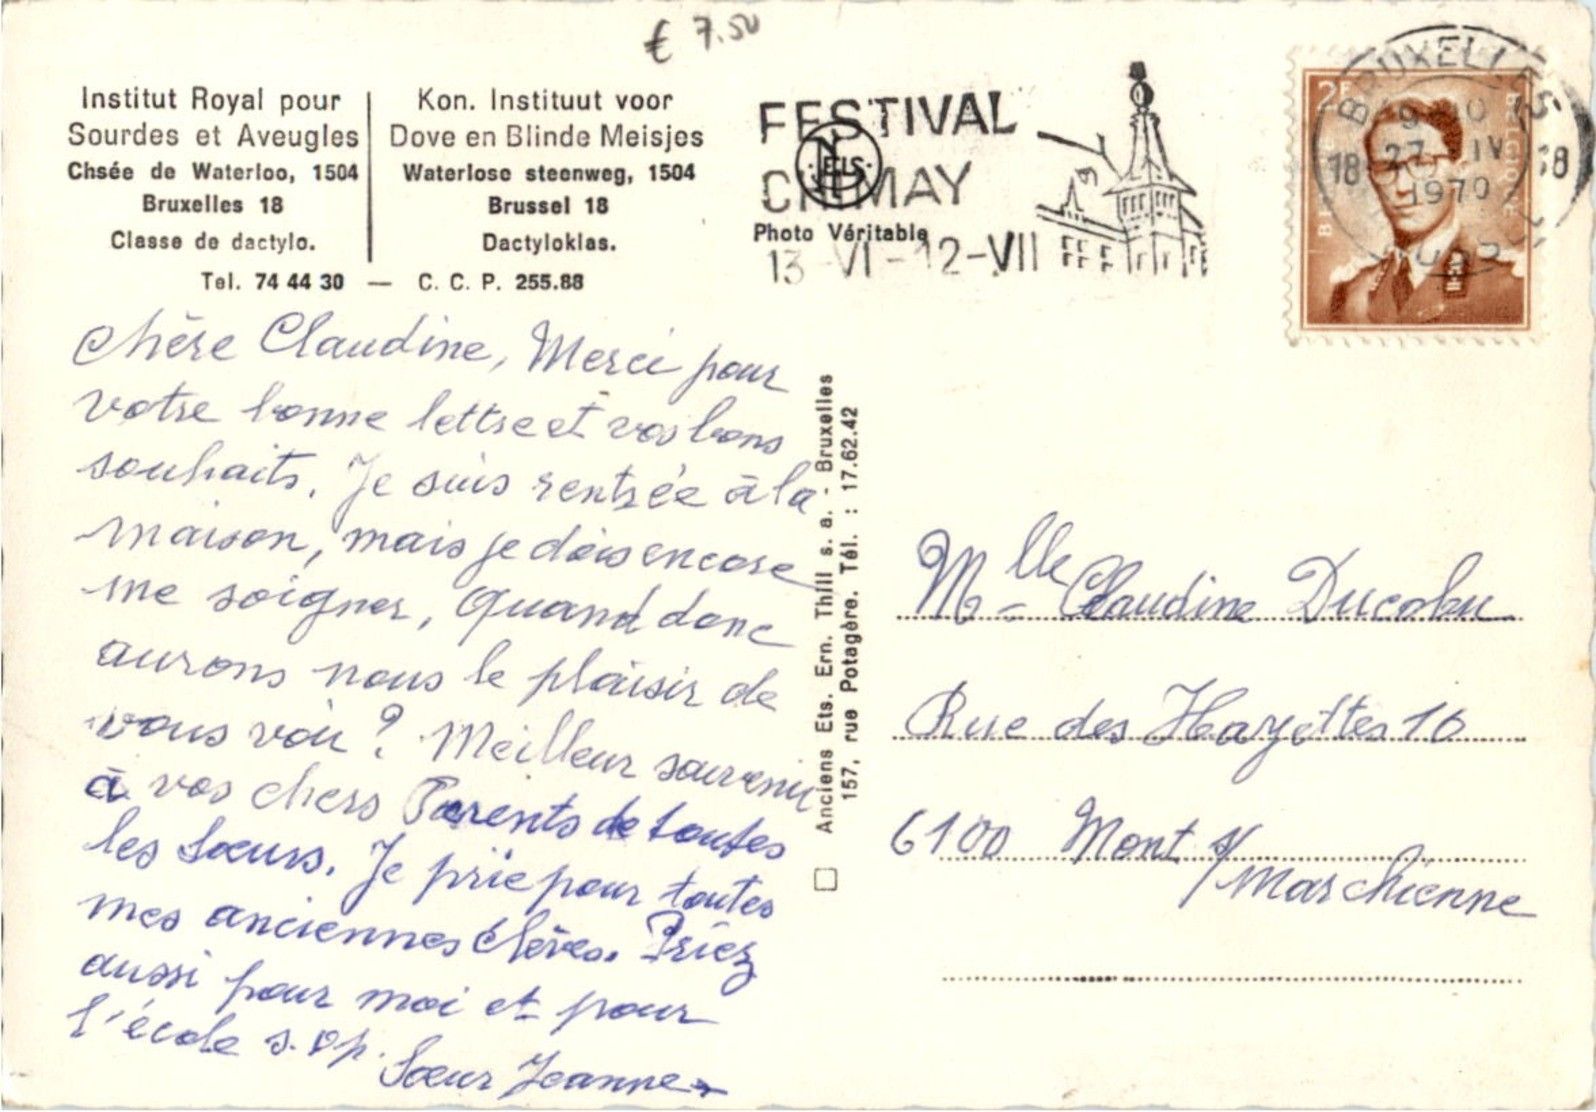 € 7.50
Institut Royal pour
Sourdes et Aveugles
Chsée de Waterloo, 1504
Bruxelles 18
Classe de dactylo.
Kon. Instituut voor
Dove en Blinde Meisjes
Waterlose steenweg, 1504
Brussel 18
Dactyloklas.
Tel. 74 44 30 — C. C. P. 255.88
FESTIVAL
CHIMAY
13-VI-12-VII
NELS
Photo Véritable
BRUXELLES
18 18
27 IV
1970
2F
BELGIQUE
chère Claudine, Merci pour
votre bonne lettre et vos bons
souhaits. Je suis rentrée à la
maison, mais je dois encore
me soigner, Quand donc
aurons nous le plaisir de
vous voir ? Meilleur souvenir
à vos chers Parents de toutes
les Soeurs. Je prie pour toutes
mes anciennes élèves. Priez
aussi pour moi et pour
l'école s.v.p.
Soeur Jeanne
Anciens Ets. Ern. Thill s. a. - Bruxelles
157, rue Potagère. Tél. : 17.62.42
Mlle Claudine Ducobu
Rue des Hayettes 16
6100 Mont s/
Marchienne